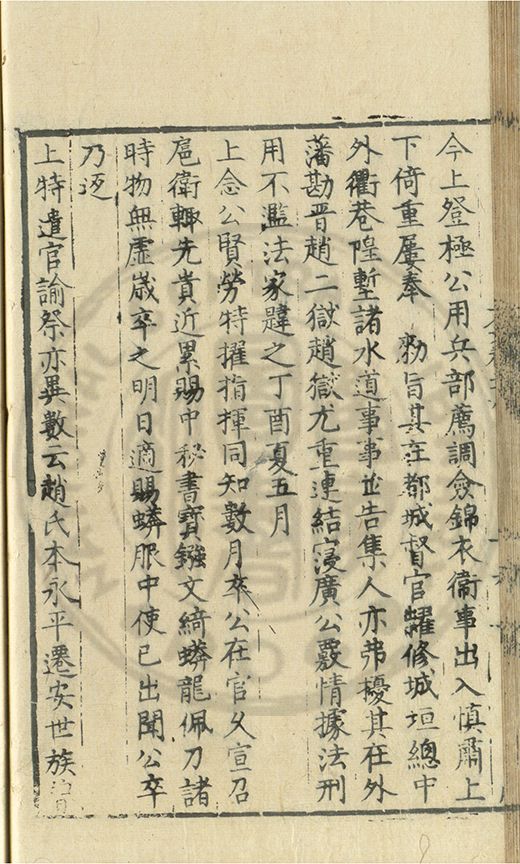 今上登極公用兵部薦調僉錦衣衞事出入慎肅上
下倚重屢奉　勑旨其在都城督官䎱修城垣總中
外衢巷隍塹諸水道事事並告集人亦弗擾其在外
藩勘晋趙二獄趙獄尤重連結寖廣公覈情據法刑
用不濫法家韙之丁酉夏五月
上念公賢勞特擢指揮同知數月卒公在官久宣召
扈衛輙先貴近累賜中秘書寶鏹文綺蟒龍佩刀諸
時物無虛歲卒之明日適賜蟒服中使已出聞公卒
乃返
上特遣官諭祭亦異數云趙氏本永平遷安世族